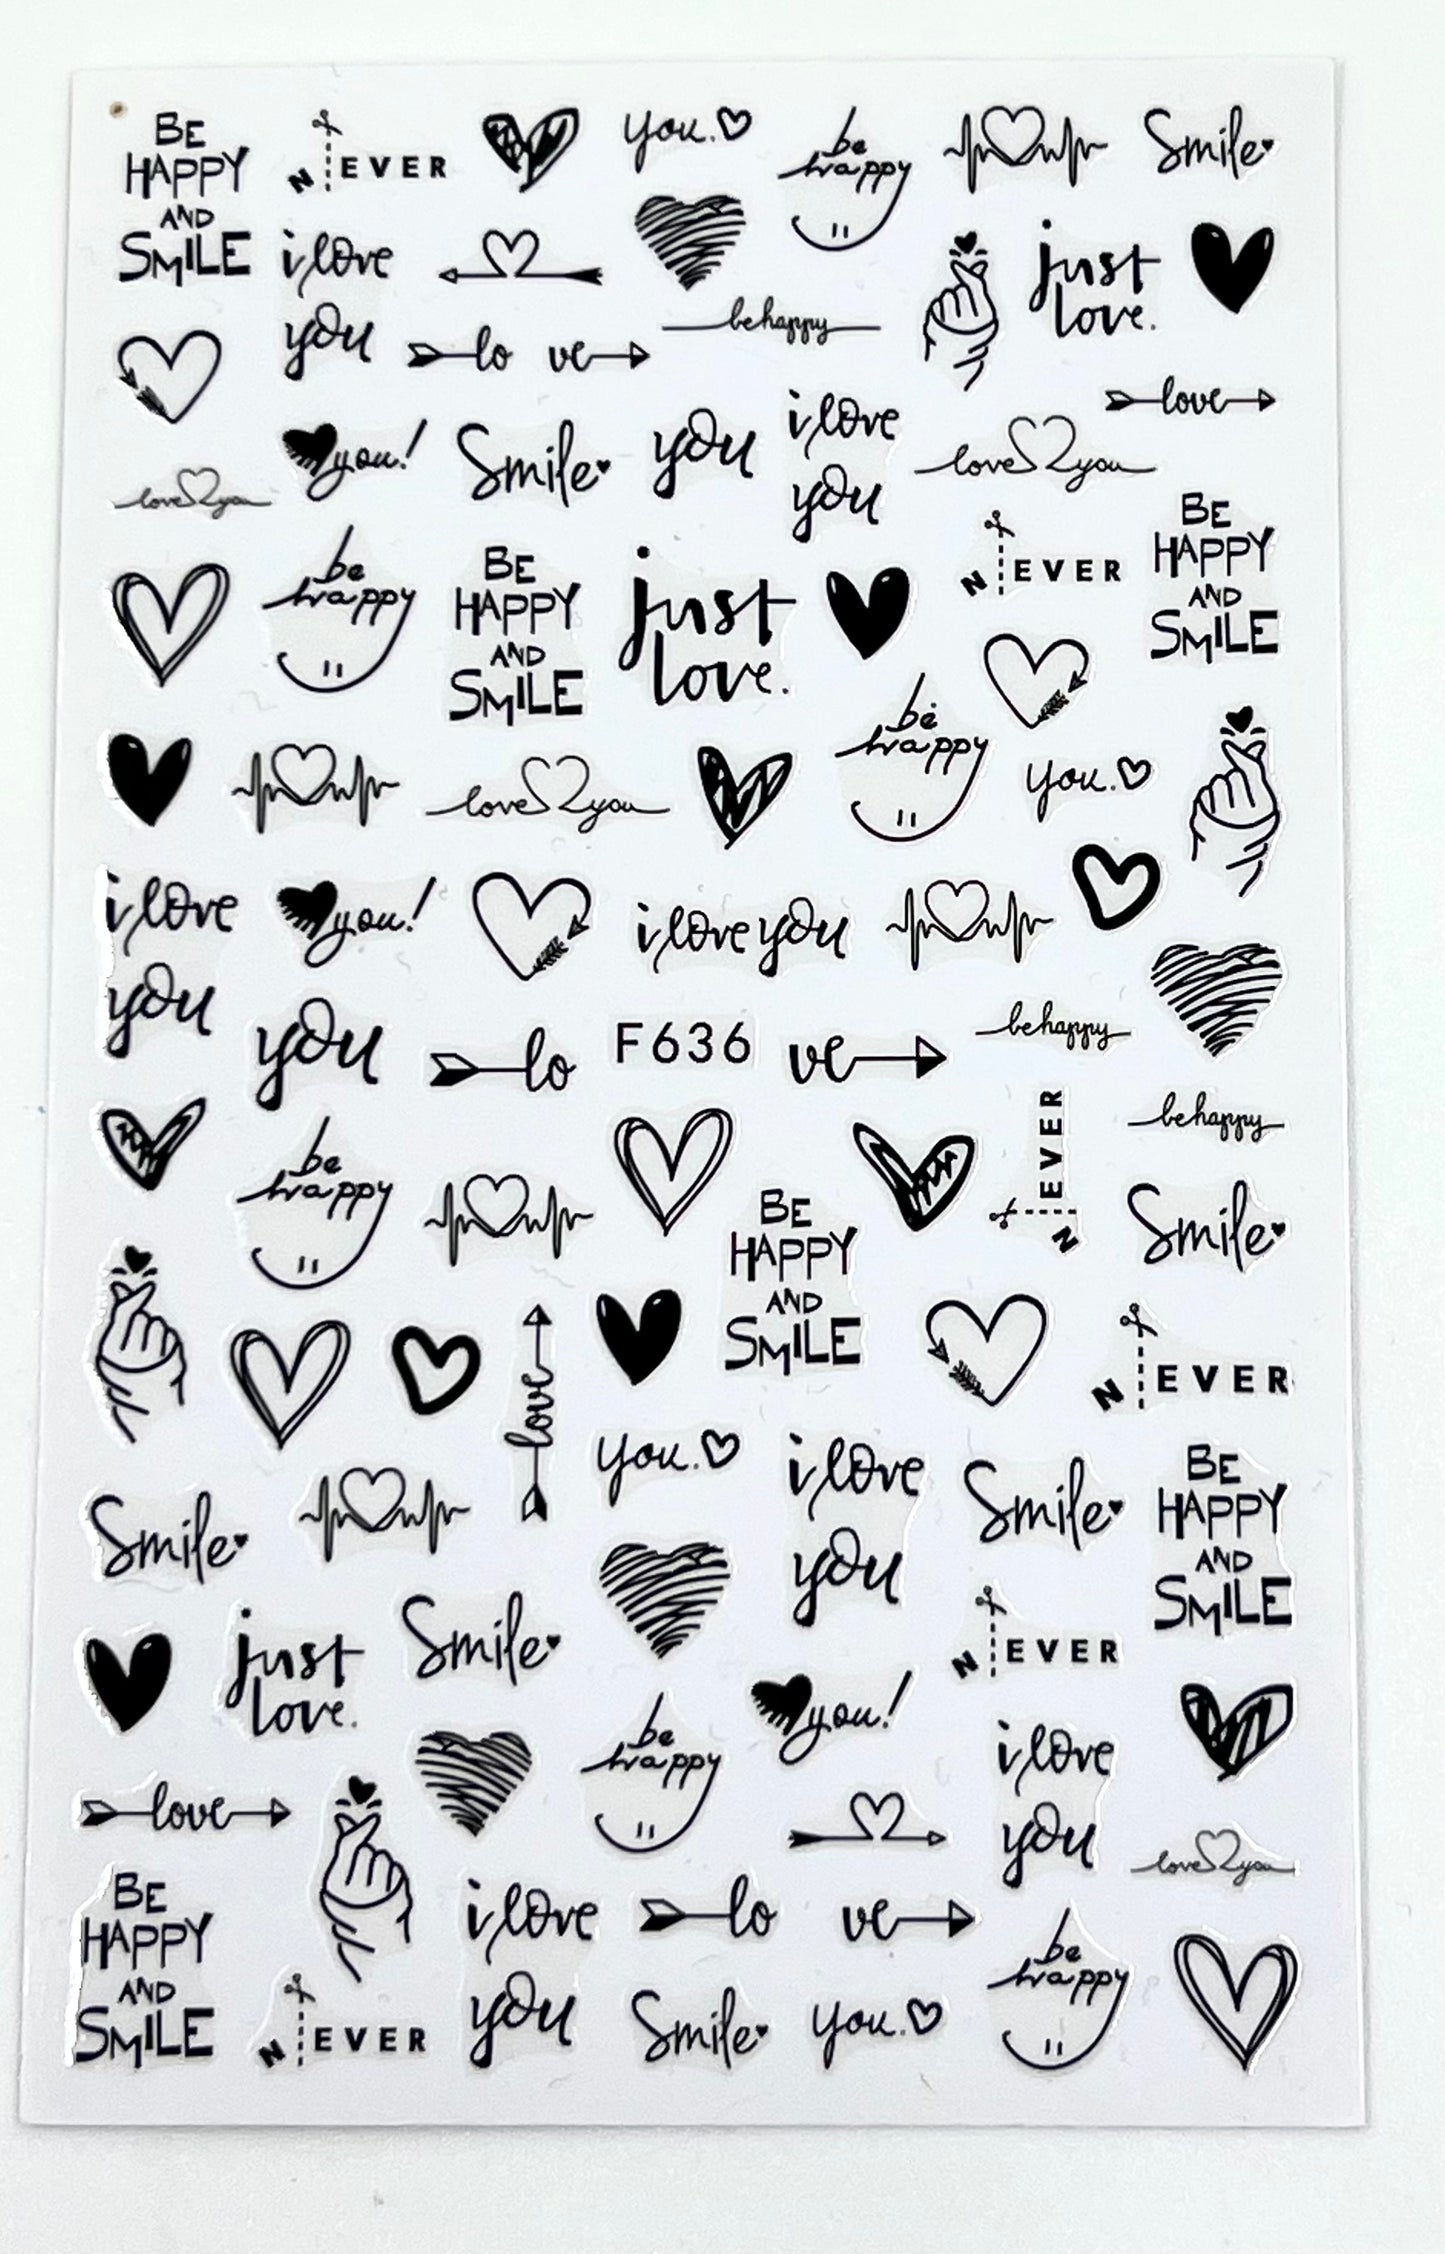 BE
HAPPY
AND
SMILE
N EVER
you.
be
happy
Smile
i love
you
just
love.
lo ve
be happy
love
love you
you!
Smile
you
i love
you
love you
be
happy
BE
HAPPY
AND
SMILE
just
love.
N EVER
BE
HAPPY
AND
SMILE
love you
be
happy
you.
i love
you
you!
i love you
you
lo
F636
ve
be happy
be happy
be
happy
N EVER
Smile
BE
HAPPY
AND
SMILE
love
N EVER
you.
i love
you
Smile
BE
HAPPY
AND
SMILE
Smile
just
love.
Smile
N EVER
you!
be
happy
i love
you
love
love you
BE
HAPPY
AND
SMILE
i love
you
lo ve
N EVER
Smile
you.
be
happy